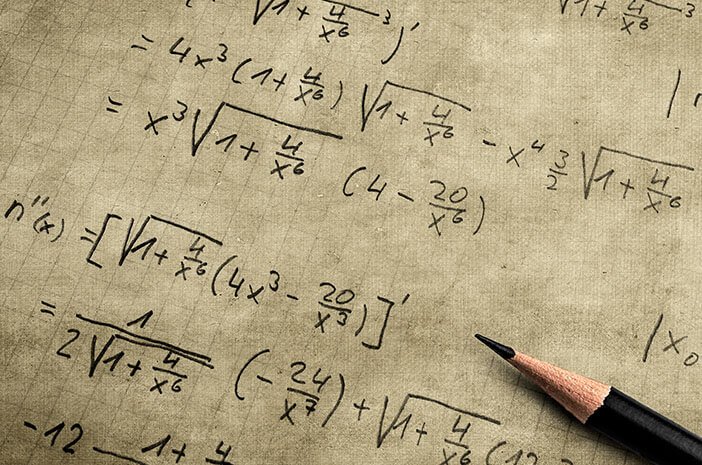 √1+4/x⁶ ³ )′ √1+4/x⁶ ³
= 4x³(1+4/x⁶) √1+4/x⁶ - x⁴ 3/2 √1+4/x⁶ |
= x³√1+4/x⁶ (4-20/x⁶)
n″(x) =[√1+4/x⁶ (4x³-20/x³)]′
= 1/2√1+4/x⁶ (-24/x⁷)+√1+4/x⁶ (12 |x₀
-12 1+4